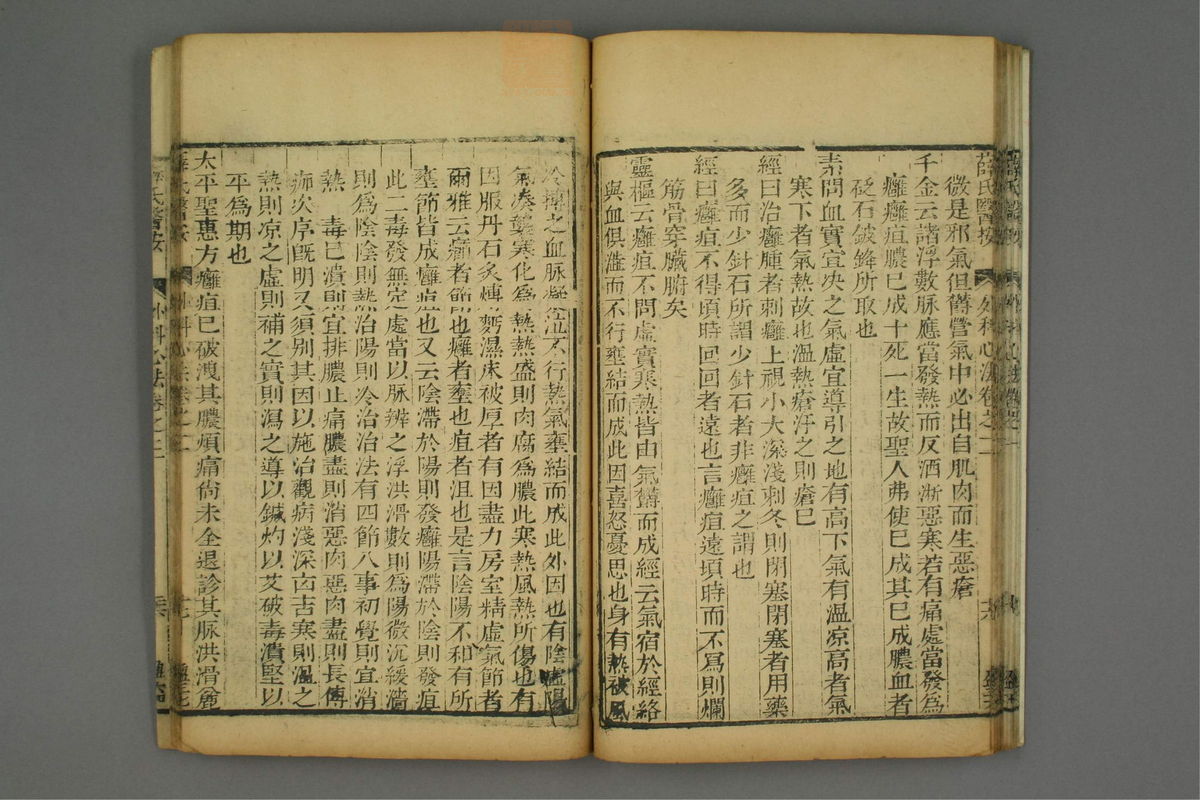 薛氏醫按 外科心法卷之二
微是邪氣但鬱營氣中必出自肌肉而生惡瘡
千金云諸浮數脉應當發熱而反洒淅惡寒若有痛處當發爲
癰癰疽膿巳成十死一生故聖人弗使巳成其巳成膿血者
砭石鈹鋒所取也
素問血實宜决之氣虛宜導引之地有高下氣有溫凉高者氣
寒下者氣熱故也溫熱瘡汗之則瘡巳
經曰治癰腫者刺癰上視小大深淺刺冬則閉塞閉塞者用藥
多而少針石所謂少針石者非癰疽之謂也
經曰癰疽不得頃時回回者遠也言癰疽遠頃時而不爲則爛
筋骨穿臟腑矣
靈樞云癰疽不問虛實寒熱皆由氣鬱而成經云氣宿於經絡
與血俱澁而不行壅結而成此因喜怒憂思也身有熱被風
冷搏之血脉凝泣不行熱氣壅結而成此外因也有陰虛陽
氣湊襲寒化爲熱熱盛則肉腐爲膿此寒熱風熱所傷也有
因服丹石炙煿麪濕床被厚者有因盡力房室精虛氣節者
爾雅云癰者節也癰者壅也疽者沮也是言陰陽不和有所
壅節皆成癰疽也又云陰滯於陽則發癰陽滯於陰則發疽
此二毒發無定處當以脉辨之浮洪滑數則爲陽微沉緩濇
則爲陰陰則熱治陽則冷治治法有四節八事初覺則宜消
熱 毒巳潰則宜排膿止痛膿盡則消惡肉惡肉盡則長傅
痂次序旣明又須別其因以施治觀病淺深 古寒則温之
熱則凉之虛則補之實則瀉之導以鍼灼以艾破毒潰堅以
平爲期也
太平聖惠方癰疽巳破洩其膿煩痛尙未全退診其脉洪滑麄
薛氏醫按 外科心法卷之二